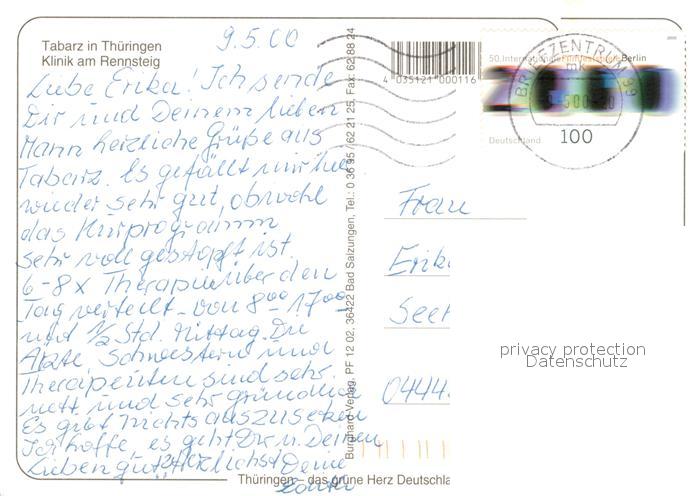 Tabarz in Thüringen
Klinik am Rennsteig
9.5.00
Liebe Erika! Ich sende
Dir und Deinem lieben
Mann herzliche Grüße aus
Tabarz. Es gefällt mir hier
wieder sehr gut, obwohl
das Kurprogramm
sehr voll gestopft ist.
6-8x Therapie über den
Tag verteilt - von 8⁰⁰-17⁰⁰
und ½ Std. Mittag. Die
Ärzte Schwestern und
Therapeuten sind sehr
nett und sehr gründlich
Es gibt nichts auszusetzen
Ich hoffe, es geht Dir u. Deinen
Lieben gut. Herzlichst Deine
Burghard-Verlag, PF 12 02, 36422 Bad Salzungen, Tel.: 0 36 95 / 62 21 25, Fax: 62 88 24
4 035121 000116
50. Internationale Filmfestspiele Berlin
BRIEFZENTRUM 99
Deutschland
100
Frau
Erik
See
0444
privacy protection
Datenschutz
Thüringen – das grüne Herz Deutschla